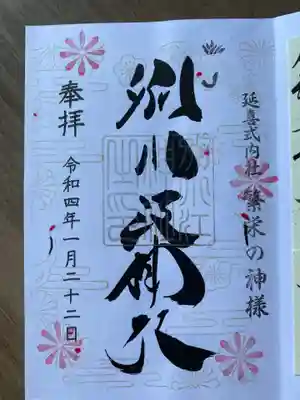 延喜式内社 繁栄の神様
別小江神社
奉拝
令和四年一月二十二日